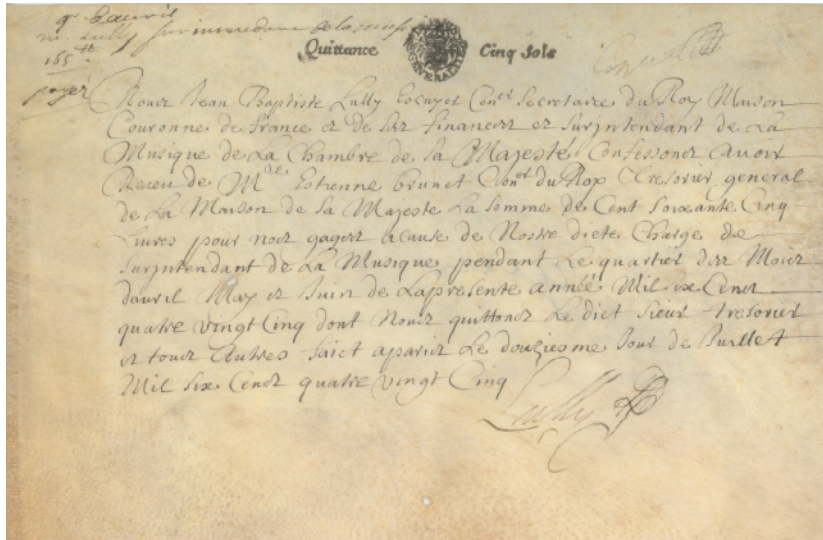 qr. davril
mr. Lully surintendant de la musi
165 tt.
payé
Quittance Cinq Sols
GENERALITES
Nous Jean Baptiste Lully Escuyer Con.er Secretaire du Roy Maison
Couronne de france et de ses finances et Surjntendant de La
Musique de La Chambre de sa Majeste Confessons Avoir
Receu de M.re Estienne brunet Con.er du Roy Tresorier general
de La Maison de Sa Majeste La somme de Cent Soixante Cinq
Livres pour nos gages acause de Nostre diete Charge de
Surjntendant de La Musique pendant Le quartier des Mois
davril May et Juin de Lapresente année Mil six Cens
quatre vingt Cinq dont Nous quittons Le diet sieur tresorier
et tous Autres faict aparis Le douziesme Jour de Juillet
Mil six Cens quatre vingt Cinq
Lully